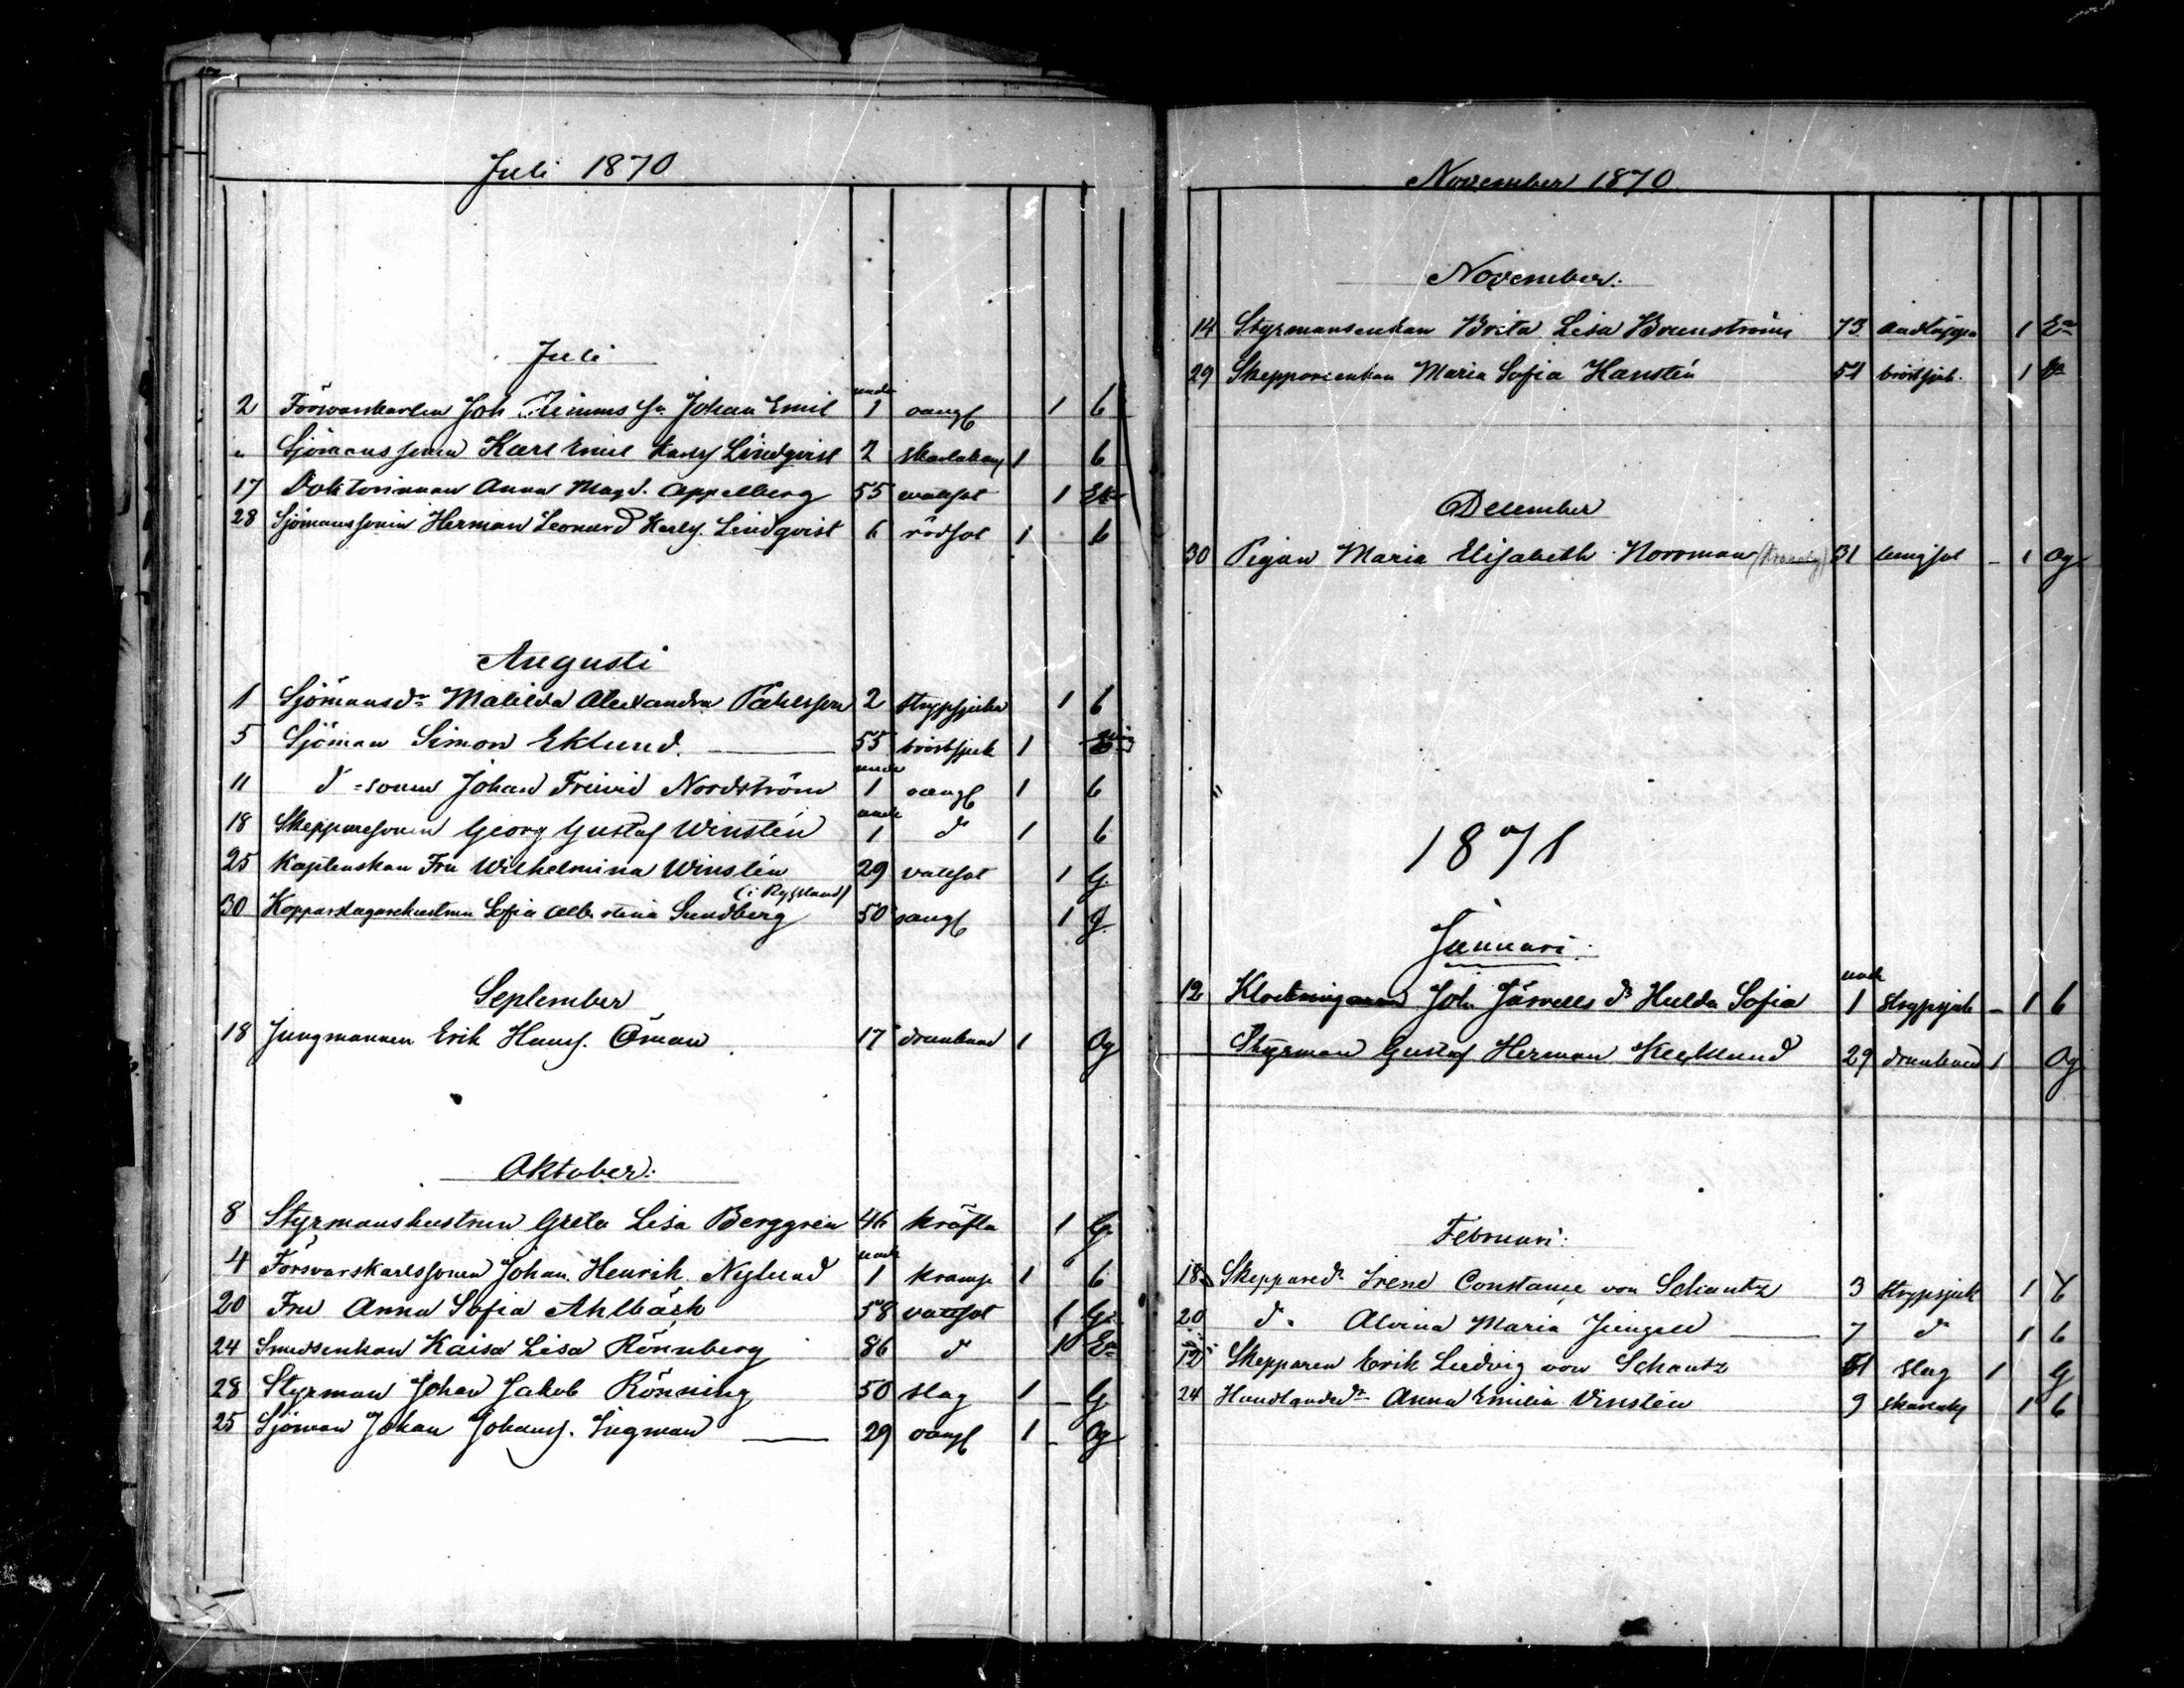 Juli 1870
Juli
2 Försvarskarlen Joh Timms sn Johan Emil under 1 oangf 1 b
" Sjömanssonen Karl Emil Karlss Lindqvist 2 skarlakansf 1 b
17 Doktorinnan Anna Magd. Appelberg 55 vattsot 1 Ek
28 Sjömanssonen Herman Leonard Karlss. Lindqvist 6 rödsot 1 b
Augusti
1 Sjömansdr Matilda Alexandra Påhlsson 2 strypsjuka 1 b
5 Sjöman Simon Eklund 55 bröstsjuk 1
11 d:o sonen Johan Frivid Nordström under 1 oangf 1 b
18 Skepparesonen Georg Gustaf Winstén under 1 do 1 b
25 Kaptenskan Fru Wilhelmina Winstén 29 vattsot 1 G.
(i Ryssland)
30 Kopparslagarehustrun Sofia Albertina Sundberg 50 oangf 1 G.
September
18 Jungmannen Erik Hanss. Öman 17 drunknad 1 Og
Oktober.
8 Styrmanshustrun Greta Lisa Berggren 46 kräfta 1 G.
4 Försvarskarlssonen Johan Henrik Nylund under 1 kramp 1 b
20 Fru Anna Sofia Ahlbäck 58 vattsot 1 G.
24 Smedsenkan Kaisa Lisa Rönnberg 86 do 1 En
28 Styrman Johan Jakob Rönning 50 slag 1 - G
25 Sjöman Johan Johanss. Ingman 29 oangf 1 - Og
November 1870.
November.
14 Styrmansenkan Brita Lisa Brunström 73 andtäppa 1 En
29 Skeppareenkan Maria Sofia Hanstén 51 bröstsjuk. 1 En
December
30 Pigan Maria Elisabeth Norrman 31 lungsot - 1 Og
1871
Januari.
12 Joh. Järvells dr Hulda Sofia under 1 strypsjuk - 1 b
Styrman Gustaf Herman 29 drunknad 1 Og
Februari.
18 Skepparedr Irene Constance von Schantz 3 strypsjuk 1 b
20 do Alvina Maria Jungell 7 do 1 b
12 Skepparen Erik Ludvig von Schantz 51 slag 1 G
24 Handlandedr Anna Emilia Vinstén 9 skarlakf 1 b